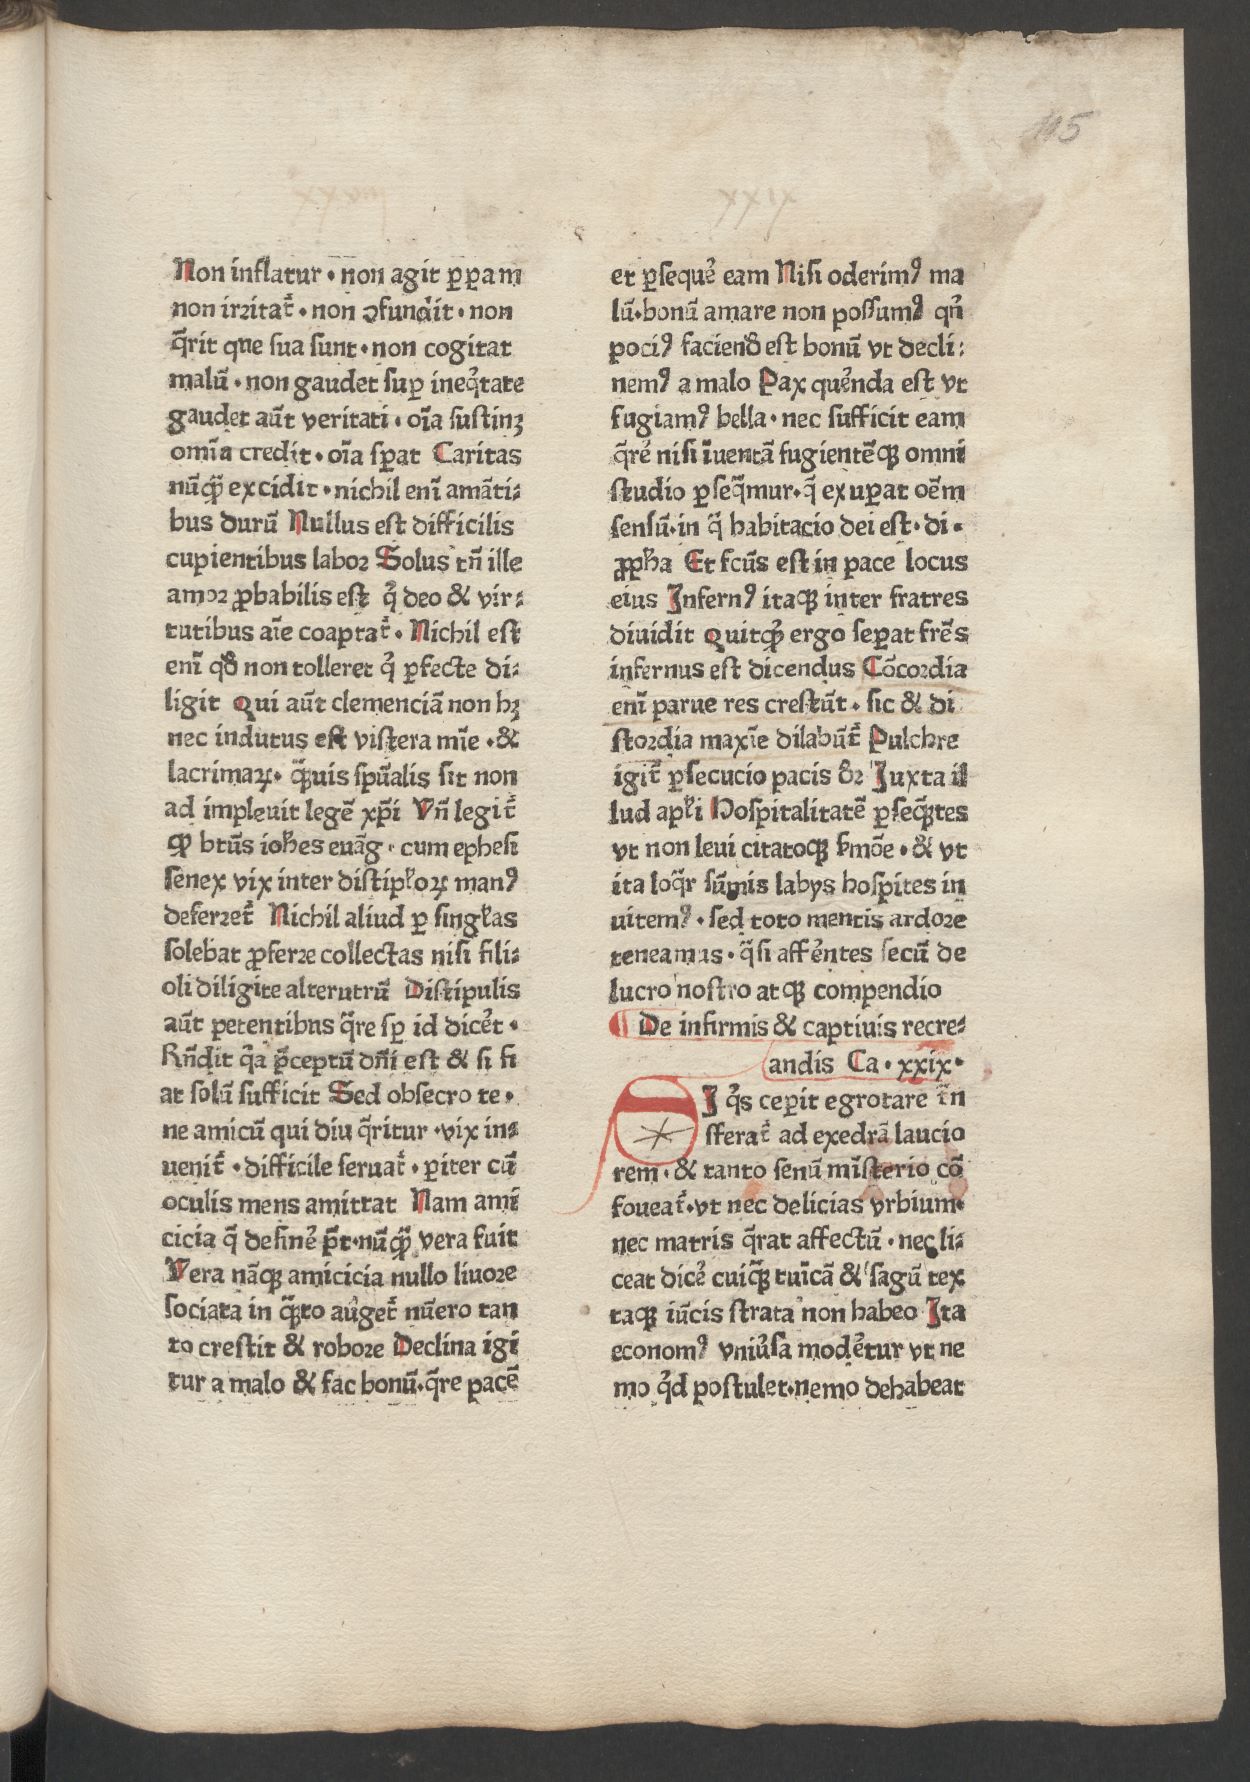 105
Non inflatur · non agit ꝑꝑam
non irritat᷑ · non ↄfundit · non
q̄rit que sua sunt · non cogitat
malū · non gaudet suꝑ ineqͥtate
gaudet aūt veritati · oīa sustinꝫ
omīa credit · oīa sꝑat Caritas
nūqꝫ excidit · nichil enī amāti⸗
bus durū Nullus est difficilis
cupientibus labor Solus tn̄ ille
amor ꝓbabilis est qͥ deo & vir⸗
tutibus aīe coaptat᷑ · Nichil est
enī qđ non tolleret qͥ ꝑfecte di⸗
ligit Qui aūt clemenciā non hꝫ
nec indutus est viscera mīe · &
lacrimaꝝ · qͣꝫuis spūalis sit non
ad impleuit legē xp̄i Vn̄ legit᷑
ꝙ btūs ioħes euāg · cum ephesi
senex vix inter discipľoꝝ manꝰ
deferret᷑ Nichil aliud ꝑ singľas
solebat ꝓferre collectas nisi fili⸗
oli diligite alterutrū Discipulis
aūt petentibus qͣre sꝑ id dic̓et ·
Rn̄dit qͥa p̄ceptū dn̄i est & si fi
at solū sufficit Sed obsecro te ·
ne amicū qui diu q̄ritur · vix in⸗
uenit᷑ · difficile seruat᷑ · ꝑiter cū
oculis mens amittat Nam ami
cicia q̄ desin̓e p̄t · nūqꝫ vera fuit
Vera nāqꝫ amicicia nullo liuore
sociata in qͣꝫto auget᷑ nūero tan
to crescit & robore Declina igi
tur a malo & fac bonū · q̄re pacē
et ꝑsequ̓e eam Nisi oderimꝰ ma
lū · bonū amare non possumꝰ qn̄
pociꝰ faciend̄ est bonū vt decli⸗
nemꝰ a malo Pax qu̓enda est vt
fugiamꝰ bella · nec sufficit eam
q̄r̓e nisi īuentā fugientēqꝫ omni
studio ꝑseq̄mur · q̄ exuꝑat oēm
sensū · in qͣ habitacio dei est · di ·
ꝓpħa Et fcūs est in pace locus
eius Infernꝰ itaqꝫ inter fratres
diuidit Quitqͥd ergo seꝑat frēs
infernus est dicendus Cōcordia
enī parue res crescūt · sic & di
scordia maxīe dilabūt᷑ Pulchre
igit᷑ ꝑsecucio pacis đr Iuxta il
lud apľi Hospitalitatē ꝑseqͣꝫtes
vt non leui citatoqꝫ ẜmōe · & vt
ita loqͣr sūmis labys hospites in
uitemꝰ · sed toto mentis ardore
teneamus · qͣsi aff̓entes secū de
lucro nostro atqꝫ compendio
De infirmis & captiuis recre⸗
andis Ca · xxix ·
SI qͥs ceꝑit egrotare tn̄
sferat᷑ ad exedrā laucio
rem · & tanto senū mīsterio cō
foueat᷑ · vt nec delicias vrbium ·
nec matris q̄rat affectū · nec li⸗
ceat dic̓e cuiqͣꝫ tuīcā & sagū tex
taqꝫ iūcis strata non habeo Ita
economꝰ vniu̓sa mod̓etur vt ne
mo qͥd postulet · nemo dehabeat